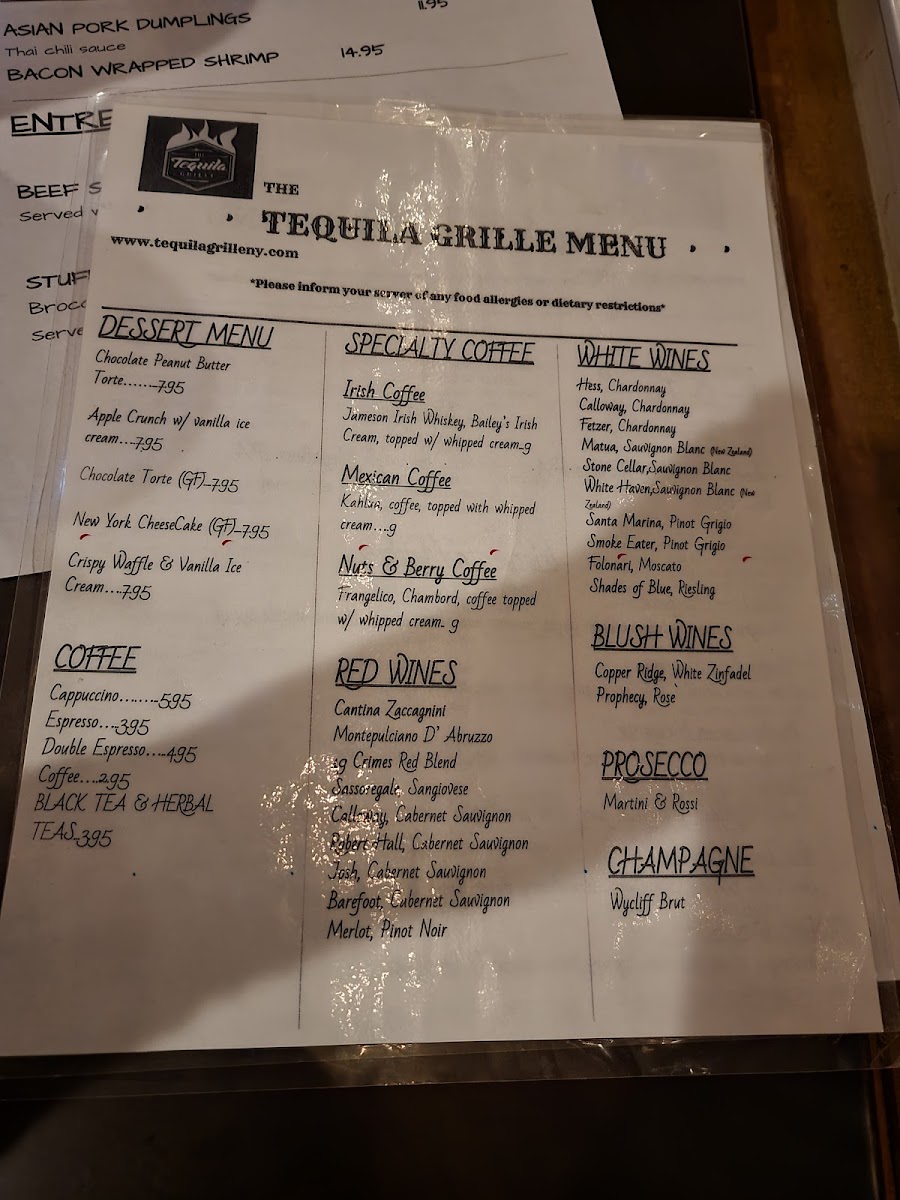 11.95
ASIAN PORK DUMPLINGS
Thai chili sauce
BACON WRAPPED SHRIMP 14.95
ENTRE
BEEF S
Served
STUF
Brocc
Serve
THE
Tequila
GRILLE
THE
TEQUILA GRILLE MENU
www.tequilagrilleny.com
*Please inform your server of any food allergies or dietary restrictions*
DESSERT MENU
Chocolate Peanut Butter
Torte.......7.95
Apple Crunch w/ vanilla ice
cream....7.95
Chocolate Torte (GF)..7.95
New York CheeseCake (GF)..7.95
Crispy Waffle & Vanilla Ice
Cream....7.95
COFFEE
Cappuccino........5.95
Espresso....3.95
Double Espresso.....4.95
Coffee....2.95
BLACK TEA & HERBAL
TEAS..3.95
SPECIALTY COFFEE
Irish Coffee
Jameson Irish Whiskey, Bailey's Irish
Cream, topped w/ whipped cream..9
Mexican Coffee
Kahlua, coffee, topped with whipped
cream....9
Nuts & Berry Coffee
Frangelico, Chambord, coffee topped
w/ whipped cream.. 9
RED WINES
Cantina Zaccagnini
Montepulciano D' Abruzzo
19 Crimes Red Blend
Sassoregale, Sangiovese
Calloway, Cabernet Sauvignon
Robert Hall, Cabernet Sauvignon
Josh, Cabernet Sauvignon
Barefoot, Cabernet Sauvignon
Merlot, Pinot Noir
WHITE WINES
Hess, Chardonnay
Calloway, Chardonnay
Fetzer, Chardonnay
Matua, Sauvignon Blanc (New Zealand)
Stone Cellar,Sauvignon Blanc
White Haven,Sauvignon Blanc (New
Zealand)
Santa Marina, Pinot Grigio
Smoke Eater, Pinot Grigio
Folonari, Moscato
Shades of Blue, Riesling
BLUSH WINES
Copper Ridge, White Zinfadel
Prophecy, Rose`
PROSECCO
Martini & Rossi
CHAMPAGNE
Wycliff Brut